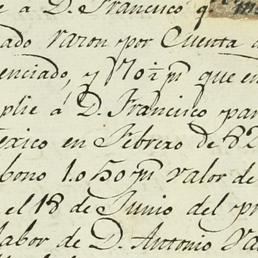 e á D. Francisco q
ado Varon por Cuenta d
enciado, y 70½ p que en
plie á D. Francisco par
exico en Febrero de 82
bono 1.050 p valor de
el 18 de Junio del pr
labor de D. Antonio Va